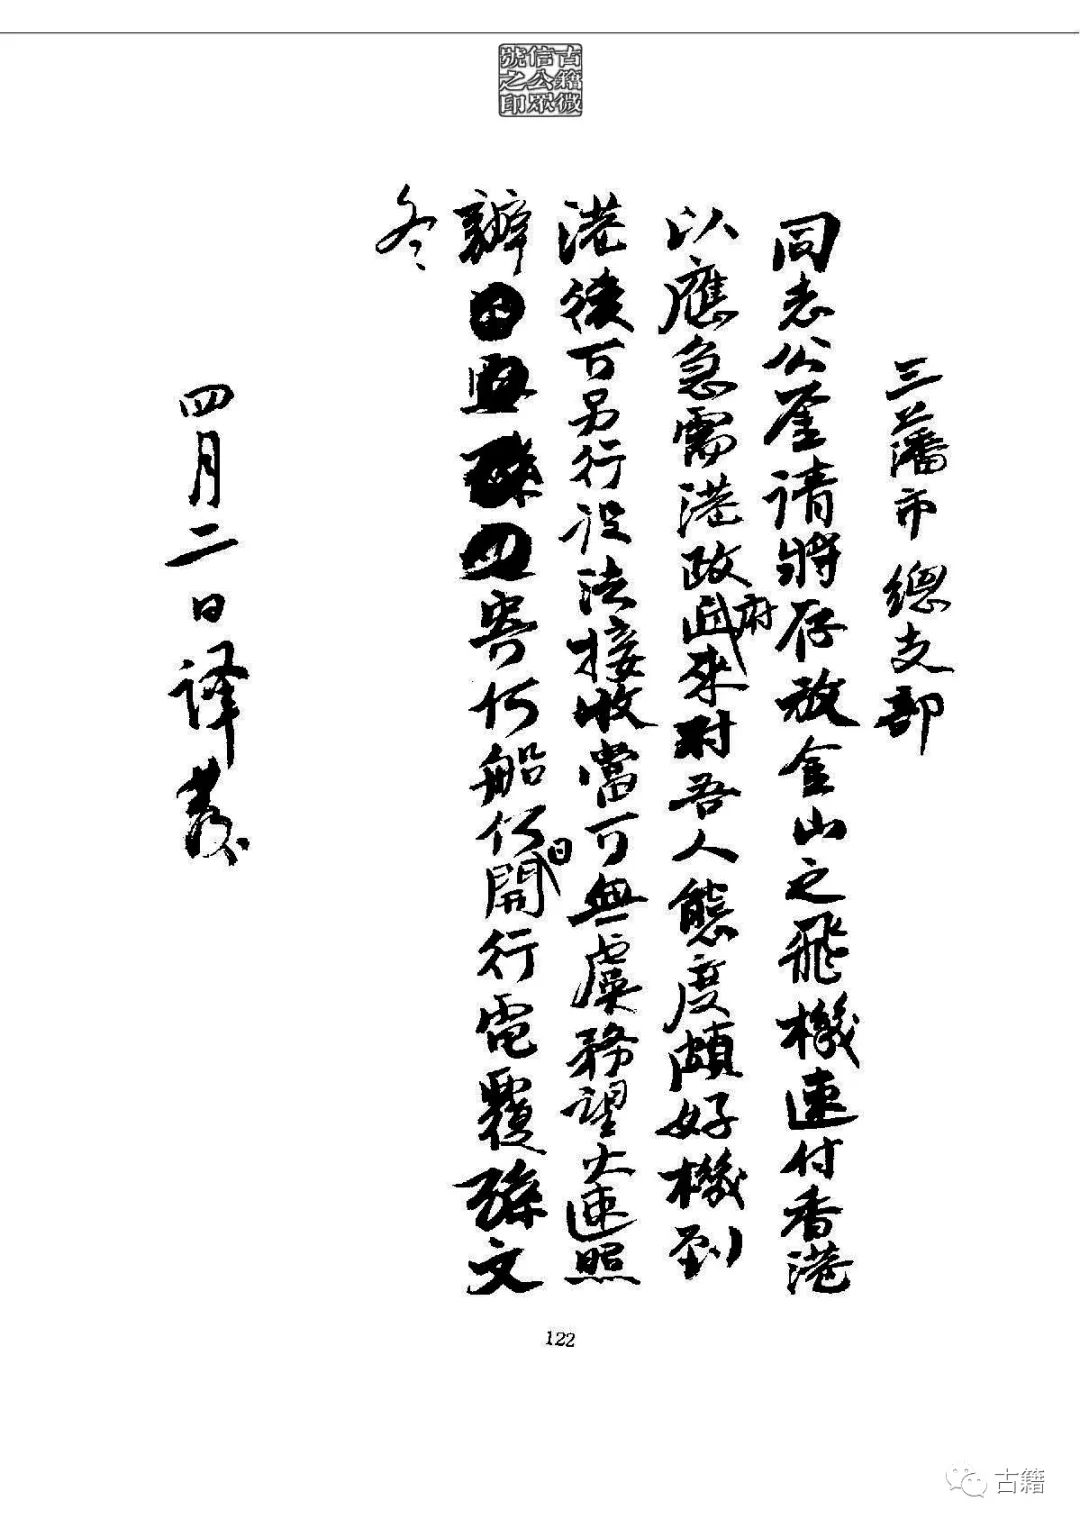 古籍微
信公眾
號之印
三藩市總支部
同志公鉴请將存放金山之飛機速付香港
以應急需港政府近來對吾人態度頗好機到
港後可另行设法接收當可無虞務望火速照
辦寄何船何日開行電覆孫文
冬
四月二日译發
122
古籍